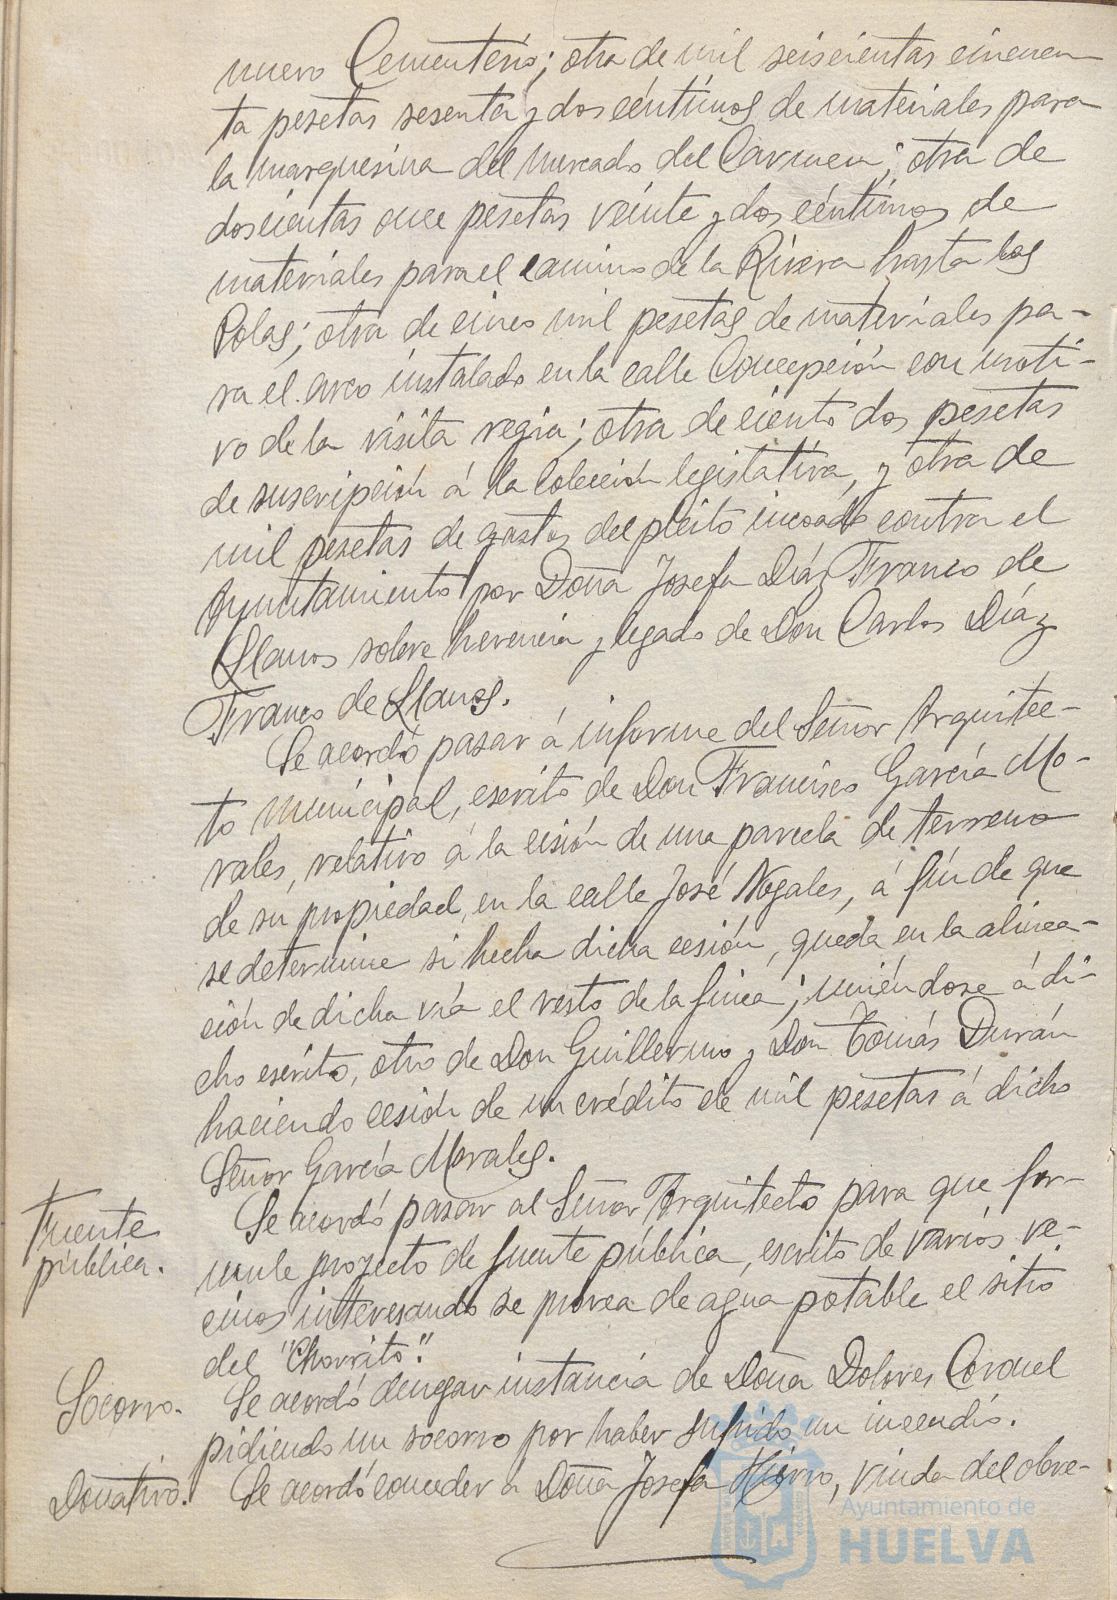 nuevo Cementerio; otra de mil seiscientas cincuen
ta pesetas sesenta y dos céntimos de materiales para
la marquesina del mercado del Carmen; otra de
doscientas once pesetas veinte y dos céntimos de
materiales para el camino de la Rivera hasta las
Colas; otra de cinco mil pesetas de materiales pa-
ra el arco instalado en la calle Concepción con moti-
vo de la visita regia; otra de ciento dos pesetas
de suscripción á la colección legislativa, y otra de
mil pesetas de gastos del pleito incoado contra el
Ayuntamiento por Doña Josefa Díaz Franco de
Llanos sobre herencia y legado de Don Carlos Díaz
Franco de Llanos.
Se acordó pasar á informe del Señor Arquitec-
to municipal, escrito de Don Francisco García Mo-
rales, relativo á la cesión de una parcela de terreno
de su propiedad, en la calle José Nogales, á fin de que
se determine si hecha dicha cesión, queda en la alinea-
ción de dicha vía el resto de la finca; uniéndose á di-
cho escrito, otro de Don Guillermo y Don Tomás Durán
haciendo cesión de un crédito de mil pesetas á dicho
Señor García Morales.
Fuente
pública.
Se acordó pasar al Señor Arquitecto para que for-
mule proyecto de fuente pública, escrito de varios ve-
cinos interesando se provea de agua potable el sitio
del "Chorrito".
Socorro.
Se acordó denegar instancia de Doña Dolores Coronel
pidiendo un socorro por haber sufrido un incendio.
Donativo.
Se acordó conceder á Doña Josefa Hierro, viuda del obre-
Ayuntamiento de
HUELVA